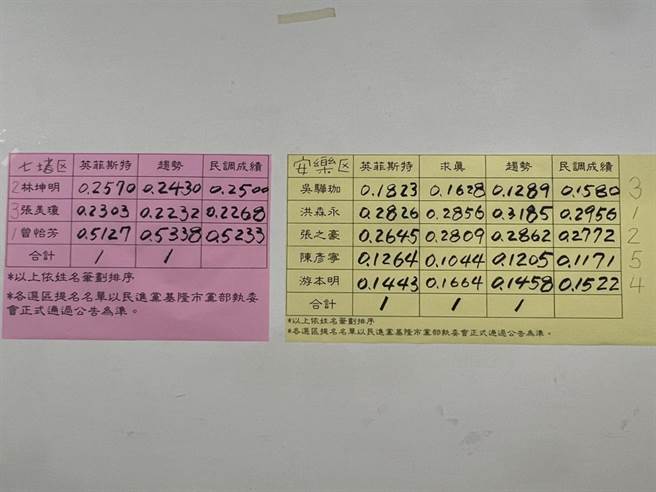 七堵区 英菲斯特 趨勢 民調成績
2 林坤明 0.2570 0.2430 0.2500
3 張美瓊 0.2303 0.2232 0.2268
1 曾怡芳 0.5127 0.5338 0.5233
合計 1 1
*以上依姓名筆劃排序
*各選區提名名單以民進黨基隆市黨部執委
會正式通過公告為準。
安樂区 英菲斯特 求真 趨勢 民調成績
吳驊珈 0.1823 0.1628 0.1289 0.1580 3
洪森永 0.2826 0.2856 0.3185 0.2956 1
張之豪 0.2645 0.2809 0.2862 0.2772 2
陳彥寧 0.1264 0.1044 0.1205 0.1171 5
游本明 0.1443 0.1664 0.1458 0.1522 4
合計 1 1 1
*以上依姓名筆劃排序
*各選區提名名單以民進黨基隆市黨部執委會正式通過公告為準。